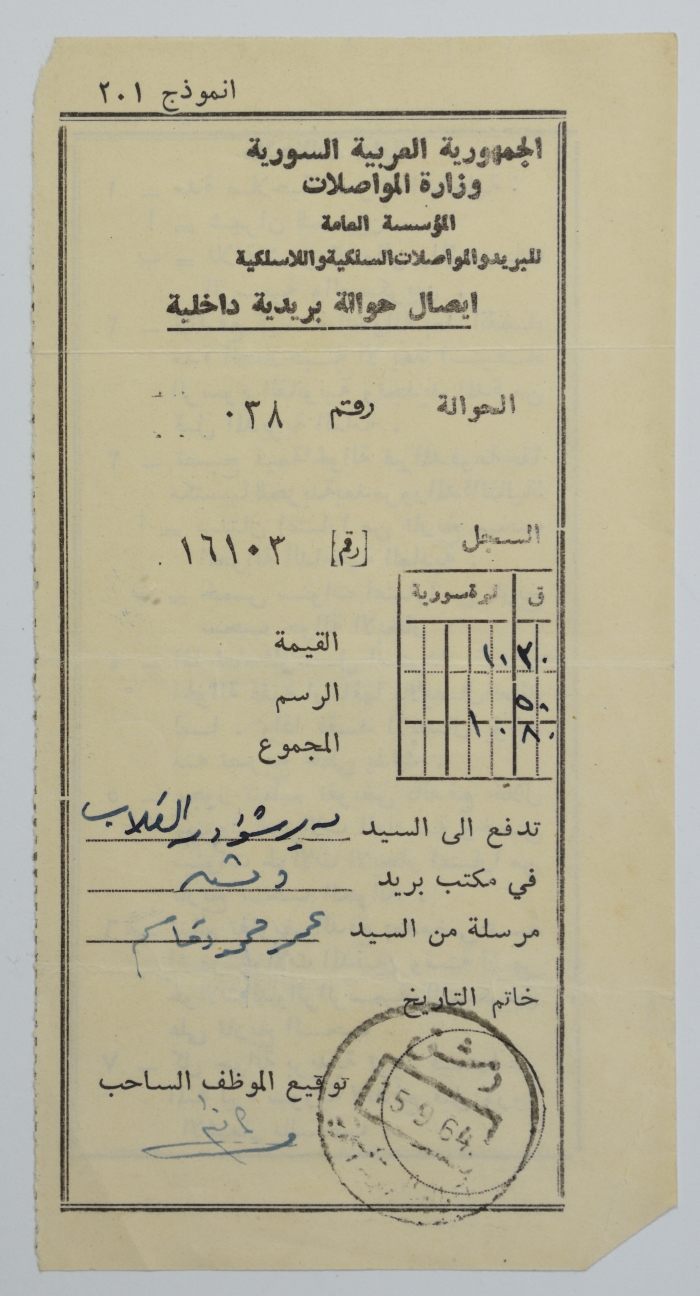 انموذج ٢٠١
الجمهورية العربية السورية
وزارة المواصلات
المؤسسة العامة
للبريد والمواصلات السلكية واللاسلكية
ايصال حوالة بريدية داخلية
الحوالة رقم ٠٣٨
السجل [رقم] ١٦١٠٣
ق ليرة سورية
القيمة ١٠ ٣٠
الرسم ٥٠
المجموع ١٠ ٨٠
تدفع الى السيد مدير شؤون الطلاب
في مكتب بريد دمشق
مرسلة من السيد عمر محمود قاسم
خاتم التاريخ
دمشق
5 9 64
توقيع الموظف الساحب